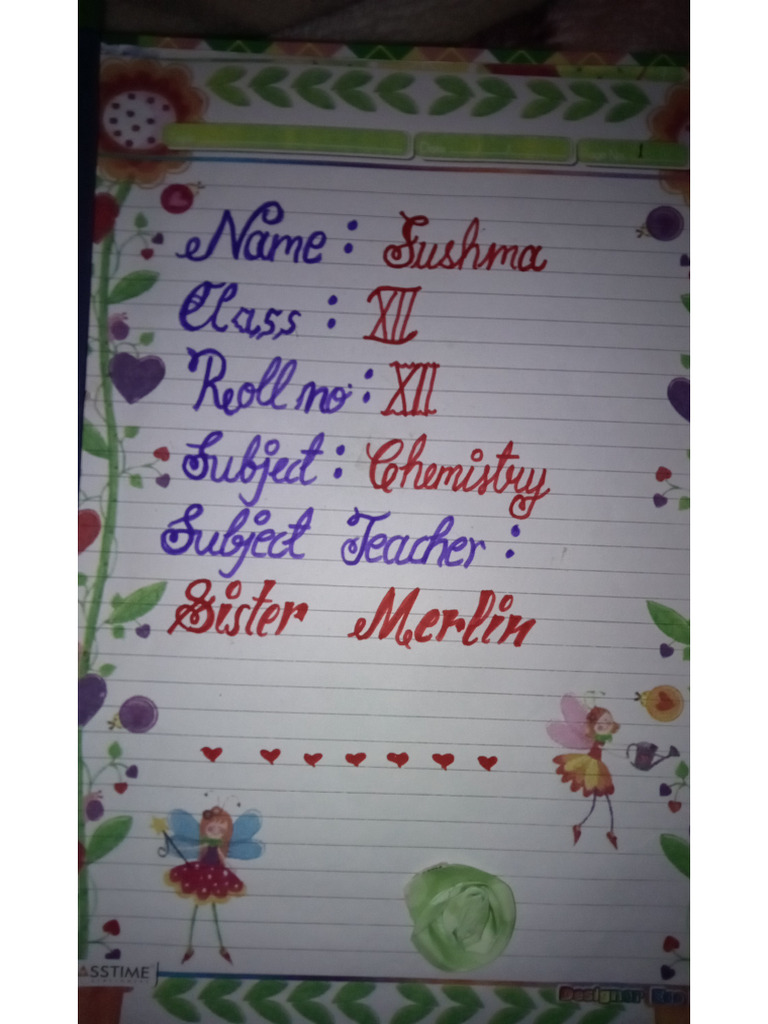 1
Name : Sushma
Class : XII
Roll no : XII
Subject : Chemistry
Subject Teacher :
Sister Merlin
ASSTIME
Designer